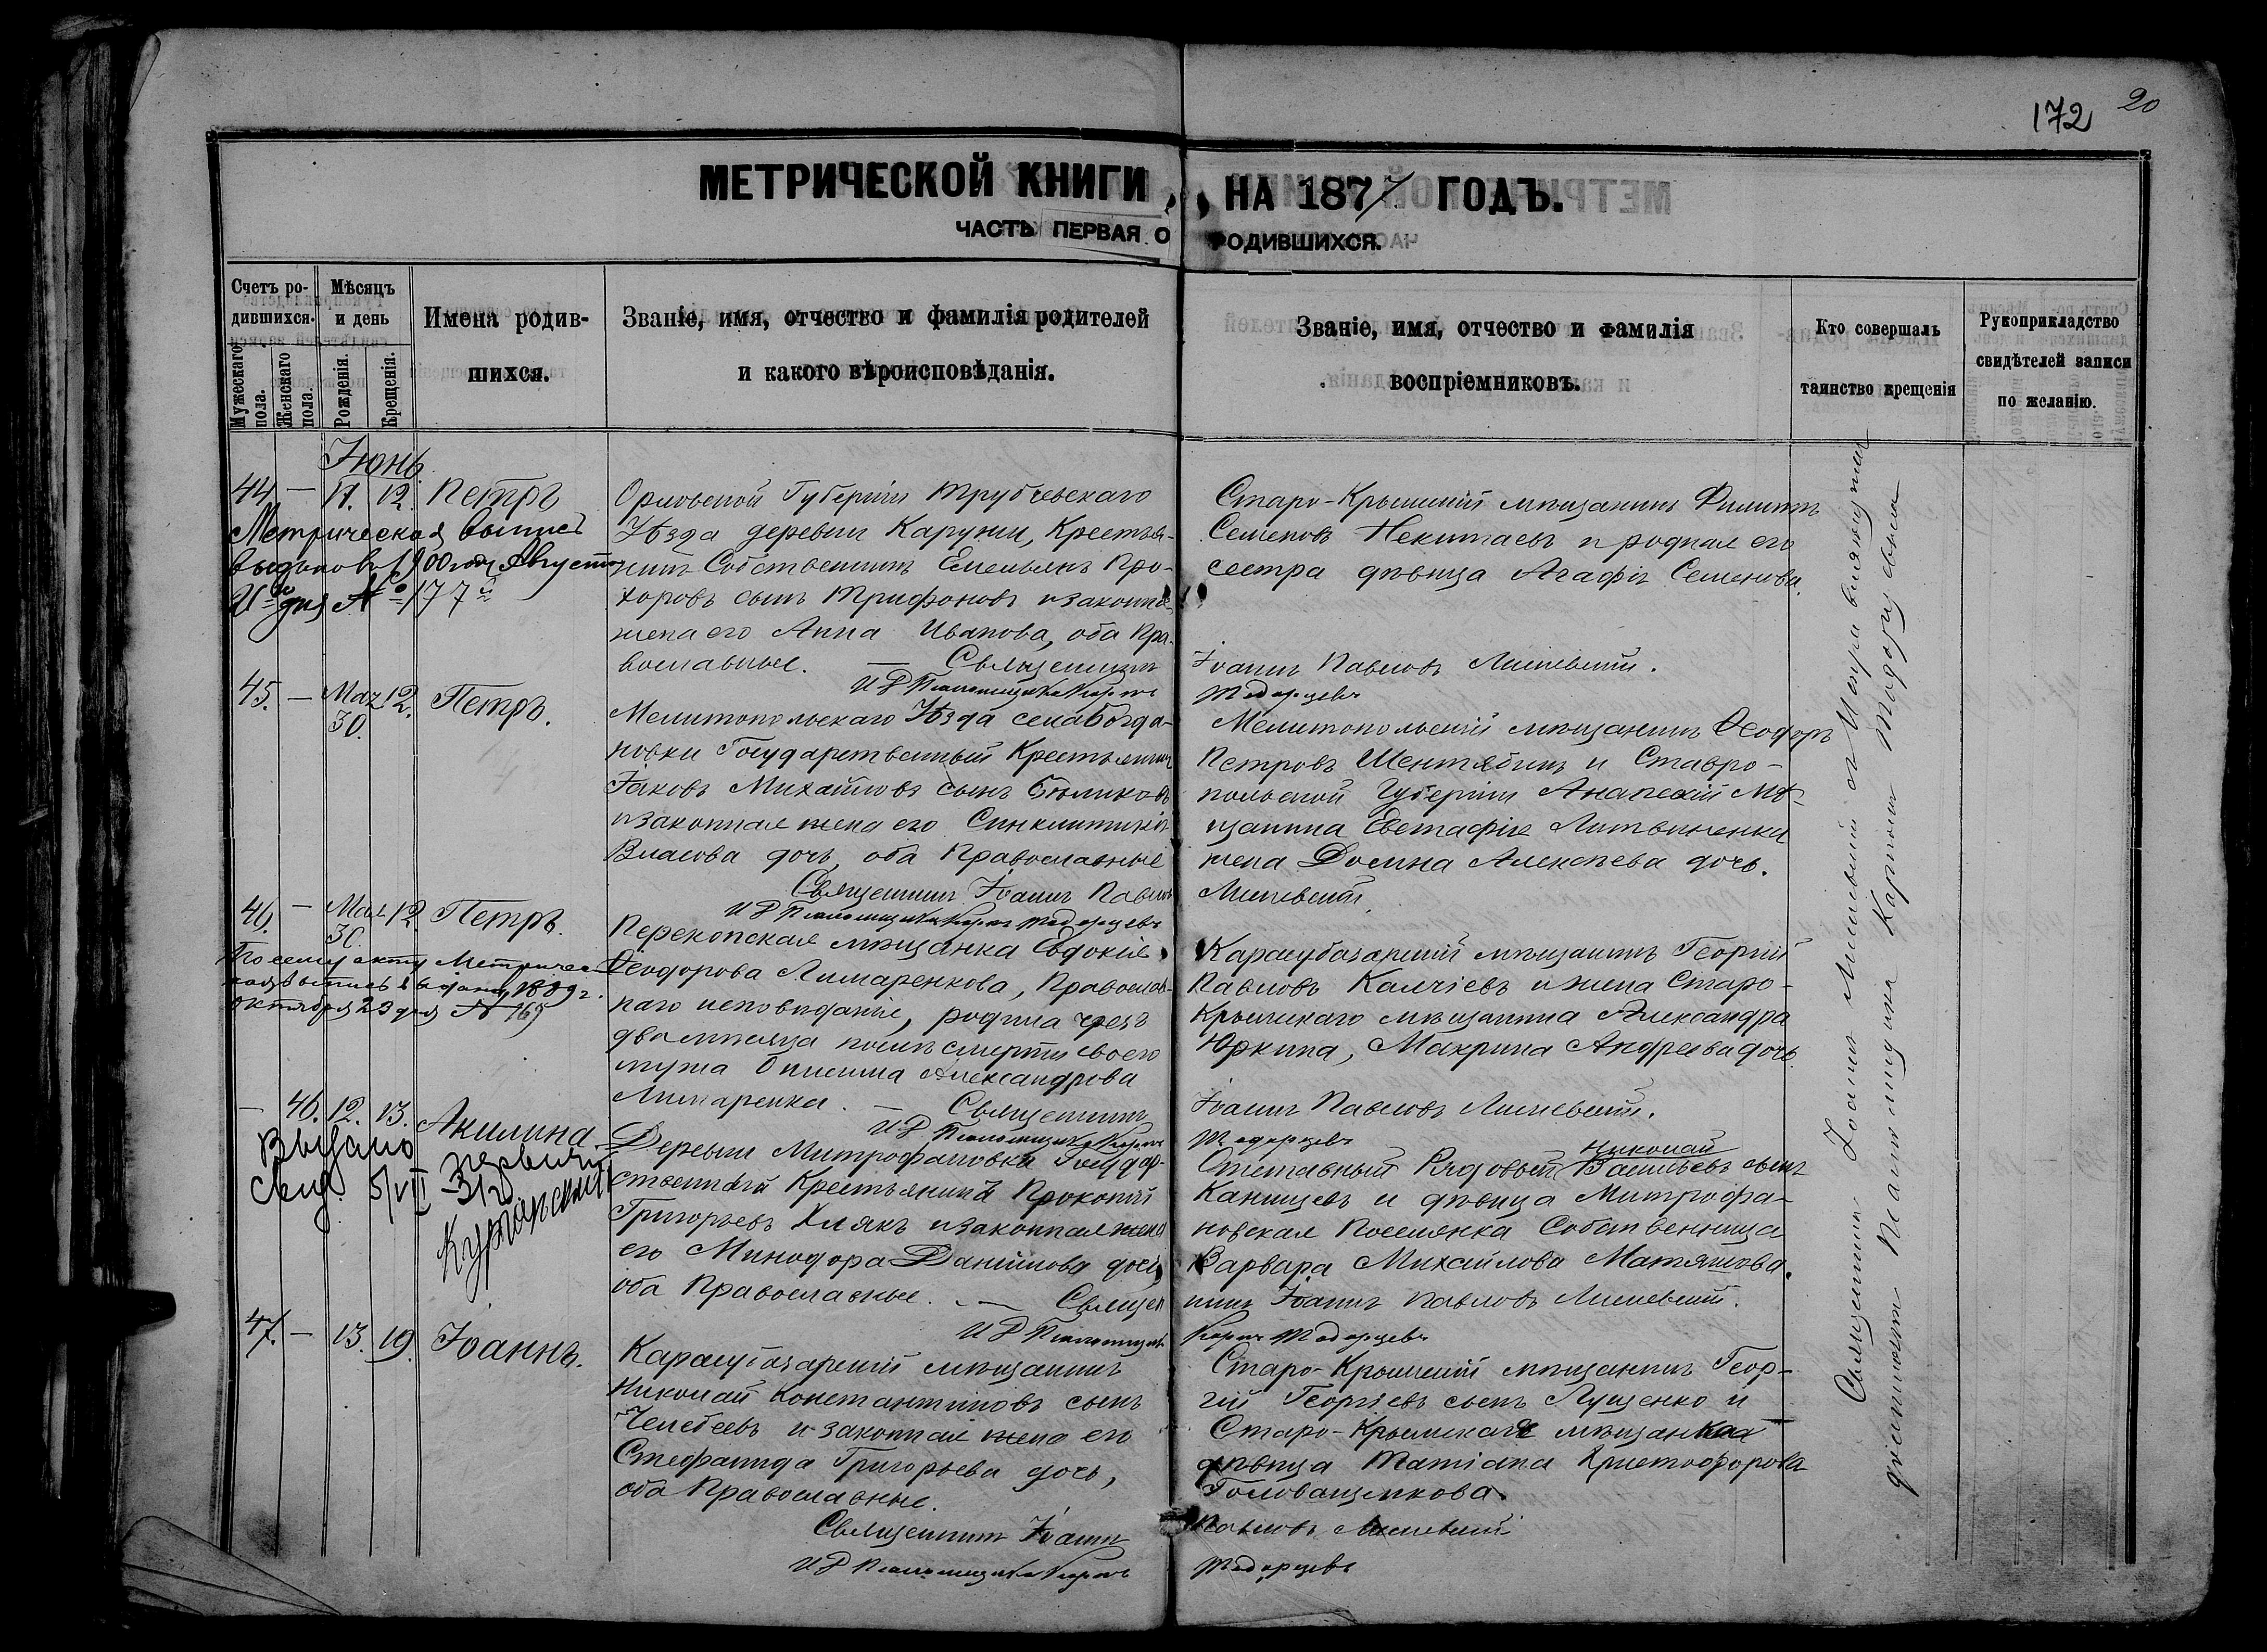 172 20
МЕТРИЧЕСКОЙ КНИГИ, НА 1877 ГОДЪ.
ЧАСТЬ ПЕРВАЯ О РОДИВШИХСЯ.
Счетъ ро-
дившихся.
Мужескаго пола.
Женскаго пола.
Мѣсяцъ
и день
Рожденія.
Крещенія.
Имена родив-
шихся.
Званіе, имя, отчество и фамилія родителей
и какого вѣроисповѣданія.
Званіе, имя, отчество и фамилія
воспріемниковъ.
Кто совершалъ
таинство крещенія
Рукоприкладство
свидѣтелей записи
по желанію.
Іюнь
44. — 11. 12. Петръ
Метрическая выпись
выдана 1900 года Августа
дня № 177
Орловской Губерніи Трубчевскаго
Уѣзда деревни Каружи, Крестья-
нинъ Собственникъ Емельянъ Про-
хоровъ сынъ Трифоновъ и законная
жена его Анна Иванова, оба Пра-
вославные. — Священникъ
И Д Псаломщика Карпъ
Старо-Крымскій мѣщанинъ Филиппъ
Семеновъ Некитаевъ и родная его
сестра дѣвица Агафія Семенова.
Іоаннъ Павловъ
Тодорцевъ
45. — Мая 30. 12. Петръ.
Мелитопольскаго Уѣзда села Богда-
новки Государственный Крестьянинъ
Іаковъ Михайловъ сынъ Бѣликовъ
и законная жена его Синклитикія
Власова дочь, оба Православные
Священникъ Іоаннъ Павловъ
И Д Псаломщика Карпъ Тодорцевъ
Мелитопольскій мѣщанинъ Ѳеодоръ
Петровъ Шентябинъ и Ставро-
польской Губерніи Анапскій Мѣ-
щанина Евстафія Литвиненка
жена Домна Алексѣева дочь.
46. — Мая 30. 12. Петръ.
По сему акту Метричес-
кая выпись выдана 1889 г.
Октября 23 дня № 165
Перекопская мѣщанка Евдокія
Ѳеодорова Лимаренкова, Православ-
наго исповѣданія, родила чрезъ
два мѣсяца послѣ смерти своего
мужа Онисима Александрова
Лимаренка. — Священникъ
И Д Псаломщика Карпъ
Карасубазарскій мѣщанинъ Георгій
Павловъ Калчіевъ и жена Старо-
Крымскаго мѣщанина Александра
Юркина, Макрина Андреева дочь.
Іоаннъ Павловъ
Тодорцевъ
— 46. 12. 13. Акилина
Выдано первич.
свид. 5/VII-31 г.
Деревни Митрофановка Государ-
ственный Крестьянинъ Прокопій
Григорьевъ Хлякъ и законная жена
его Минодора Даніилова дочь,
оба Православные. — Священ
И Д Псаломщика
Николай
Отставный Рядовый Васильевъ сынъ
Канищевъ и дѣвица Митрофа-
новская Поселянка Собственница
Варвара Михайлова Матяшова.
никъ Іоаннъ Павловъ
Карпъ Тодорцевъ
47. — 13. 19. Іоаннъ.
Карасубазарскій мѣщанинъ
Николай Константиновъ сынъ
Челебеевъ и законная жена его
Стефанида Григорьева дочь,
оба Православные.
Священникъ Іоаннъ
И Д Псаломщика Карпъ
Старо-Крымскій мѣщанинъ Геор-
гій Георгіевъ сынъ Лущенко и
Старо-Крымская мѣщанка
дѣвица Татіана Христофорова
Голованщикова.
Павловъ
Тодорцевъ
Священникъ Іоаннъ
Псаломщика Карпомъ Тодорцевымъ